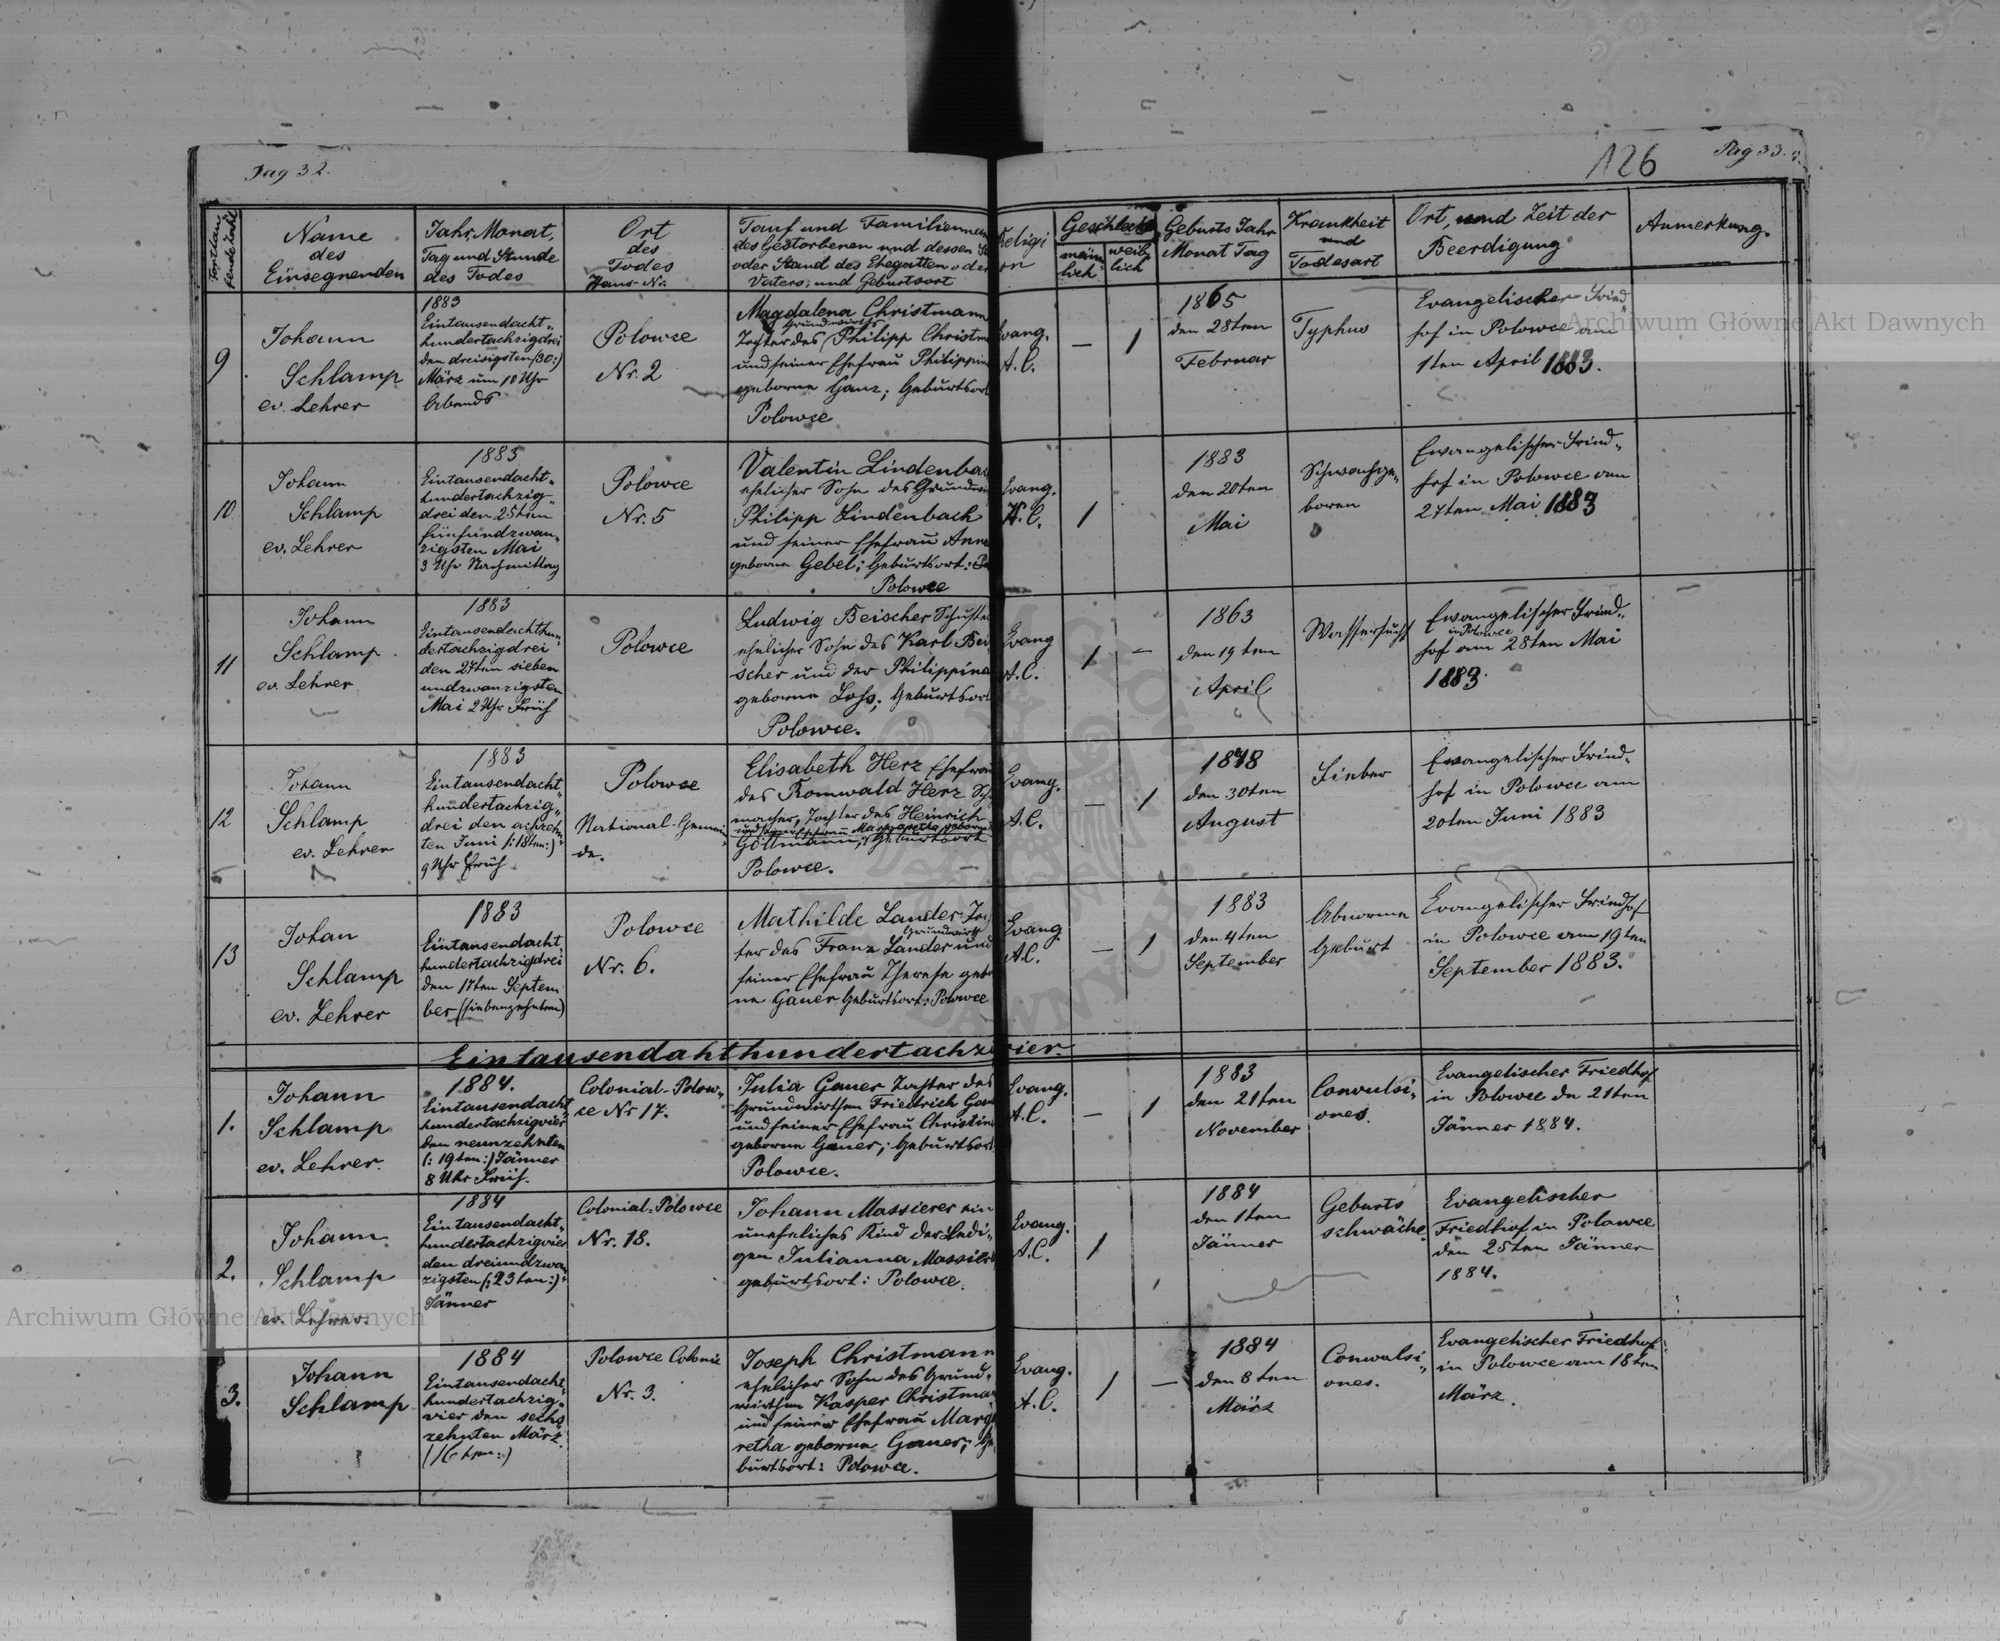 Pag 32.
126
Pag 33.
Fortlau
fende Zahl
Name
des
Einsegnenden
Jahr, Monat,
Tag und Stunde
des Todes
Ort
des
Todes
Haus-Nr.
Tauf und Familienname
des Gestorbenen und dessen
oder Stand des Ehegatten oder
Vaters; und Geburtsort
Religi
on
Geschlecht
männ
lich
weib
lich
Geburts Jahr
Monat Tag
Krankheit
und
Todesart
Ort, und Zeit der
Beerdigung
Anmerkung.
9
Johann
Schlamp
ev. Lehrer
1883
Eintausendacht-
hundertachzigdrei
den dreisigsten /30:)
März um 10 Uhr
Abends
Polowce
Nr. 2
Magdalena Christmann
Grundwirths
Tochter des Philipp Christm
und seiner Ehefrau Philippin
geborne Ganz; Geburtsort
Polowce
Evang.
A. C.
—
1
1865
den 28ten
Februar
Typhus
Evangelischer Fried
hof in Polowce am
1ten April 1883.
10
Johann
Schlamp
ev. Lehrer
1883
Eintausendacht-
hundertachzig-
drei den 25ten
fünfundzwan-
zigsten Mai
3 Uhr Nachmittag
Polowce
Nr. 5
Valentin Lindenbac
ehelicher Sohn des Grundwi
Philipp Lindenbach
und seiner Ehefrau Anna
geborne Gebel; Geburtsort:
Polowce
Evang.
A. C.
1
1883
den 20ten
Mai
Schwachge-
boren
Ewangelischer Fried-
hof in Polowce am
27ten Mai 1883
11
Johann
Schlamp
ev. Lehrer
1883
Eintausendachthun-
dertachzigdrei
den 27ten sieben
undzwanzigsten
Mai 2 Uhr Früh
Polowce
Ludwig Beischer Schuster
ehelicher Sohn des Karl Bei
scher und der Philippina
geborne Lohs; Geburtsort
Polowce.
Evang
A. C.
1
—
1863
den 19ten
April
Wassersucht
Ewangelischer Fried-
in Polowce
hof am 28ten Mai
1883.
12
Johann
Schlamp
ev. Lehrer
1883
Eintausendacht-
hundertachzig-
drei den achzehn-
ten Juni (:18ten:)
9 Uhr Früh
Polowce
National-Gemein-
de.
Elisabeth Herz Ehefrau
des Romwald Herz Sch
macher, Tochter des Heinrich
und seiner Ehefrau Margaretha geborne
Gottmann, Geburtsort
Polowce.
Evang.
A. C.
—
1
1848
den 30ten
August
Fieber
Ewangelischer Fried-
hof in Polowce am
20ten Juni 1883
13
Johan
Schlamp
ev. Lehrer
1883
Eintausendacht-
hundertachzigdrei
den 17ten Septem
ber (siebenzehnten)
Polowce
Nr. 6.
Mathilde Lander Toch
Grundwirth
ter des Franz Lander und
seiner Ehefrau Therese gebo
ne Gauer Geburtsort: Polowce
Evang.
A. C.
—
1
1883
den 4ten
September
Abnorme
Geburt
Evangelischer Friedhof
in Polowce am 19ten
September 1883.
Eintausendahthundertachzvier.
1.
Johann
Schlamp
ev. Lehrer.
1884.
Eintausendacht
hundertachzigvier
den neunzehnten
(: 19ten:) Jänner
8 Uhr Früh.
Colonial-Polow-
ce Nr 17.
Julia Gauer Tochter des
Grundwirthen Friedrich Gau
und seiner Ehefrau Christin
geborne Gauer; Geburtsort
Polowce.
Evang.
A. C.
—
1
1883
den 21ten
November
Convulsi-
ones.
Evangelischer Friedhof
in Polowce de 21ten
Jänner 1884.
2.
Johann
Schlamp
ev. Lehrer.
1884
Eintausendacht-
hundertachzigvier
den dreiundzwan
zigsten (:23ten:)
Jänner
Colonial-Polowce
Nr. 18.
Johann Massierer ein
uneheliches Kind der Ledi-
gen Julianna Massier
geburtsort: Polowce.
Evang.
A. C.
1
1884
den 1ten
Jänner
Geburts
schwäche
Evangelischer
Friedhof in Polowce
den 25ten Jänner
1884.
3.
Johann
Schlamp
1884
Eintausendacht-
hundertachzig-
vier den sechs
zehnten März
(16ten:)
Polowce Colonie
Nr. 3.
Joseph Christmann
ehelicher Sohn des Grund-
wirthen Kasper Christman
und seiner Ehefrau Marga
retha geborne Gauer; Ge
burtsort: Polowce.
Evang.
A. C.
1
—
1884
den 8ten
März
Conwulsi-
ones.
Evangelischer Friedhof
in Polowce am 18ten
März.
Archiwum Główne Akt Dawnych
Archiwum Główne Akt Dawnych